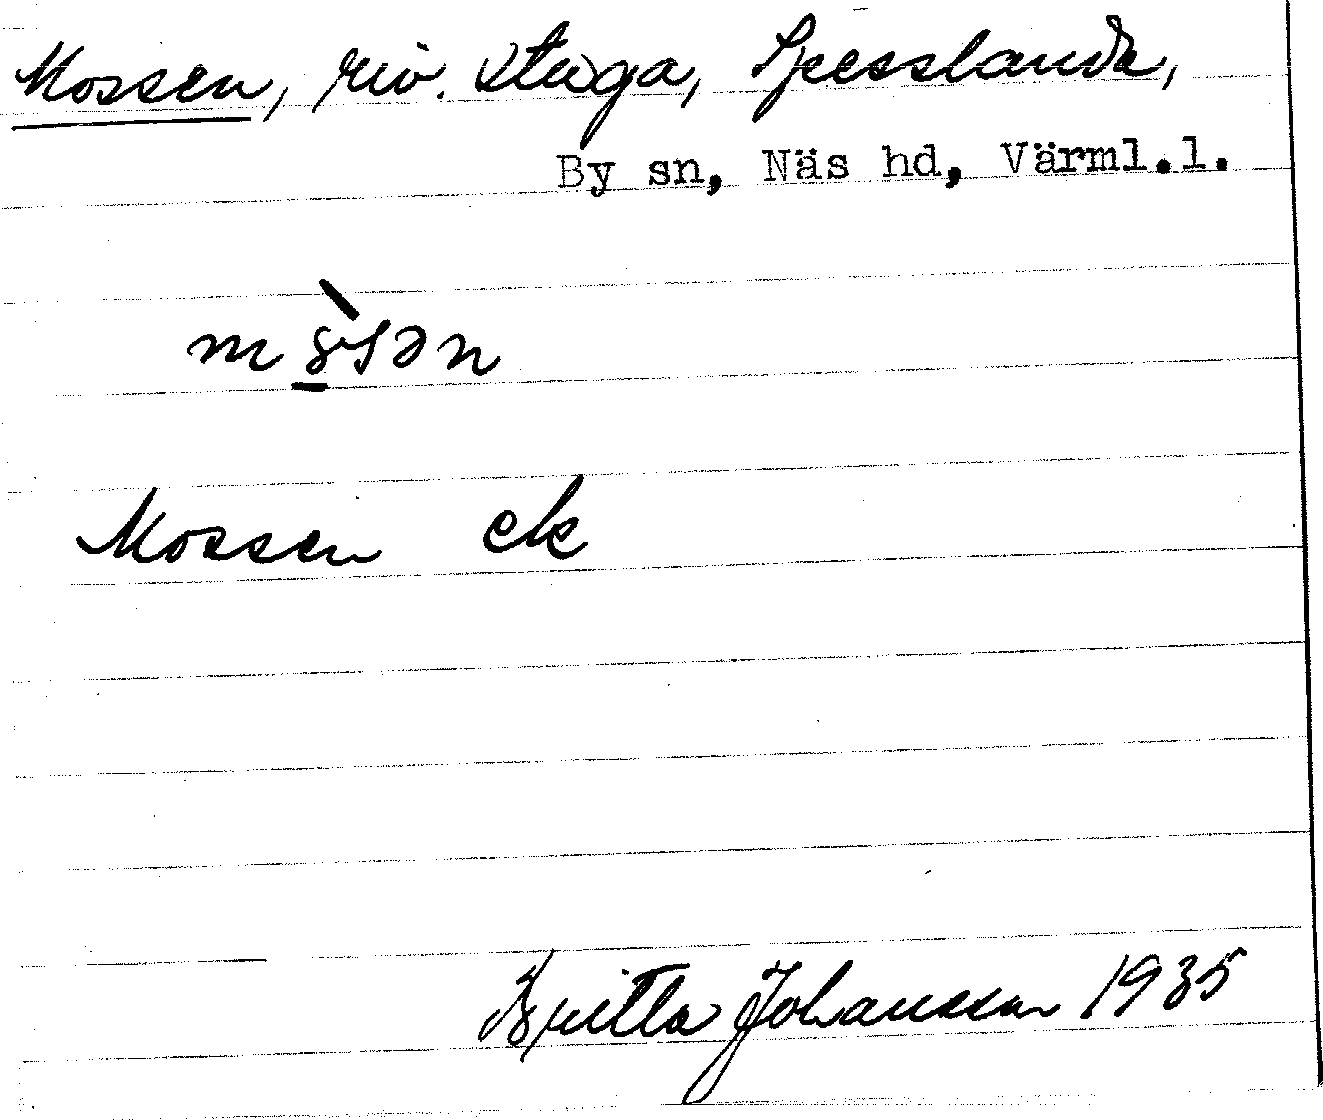 Mossen, riv. stuga,
By sn, Näs hd, Värml.l.
Mossen ek
Britta Johansson 1935